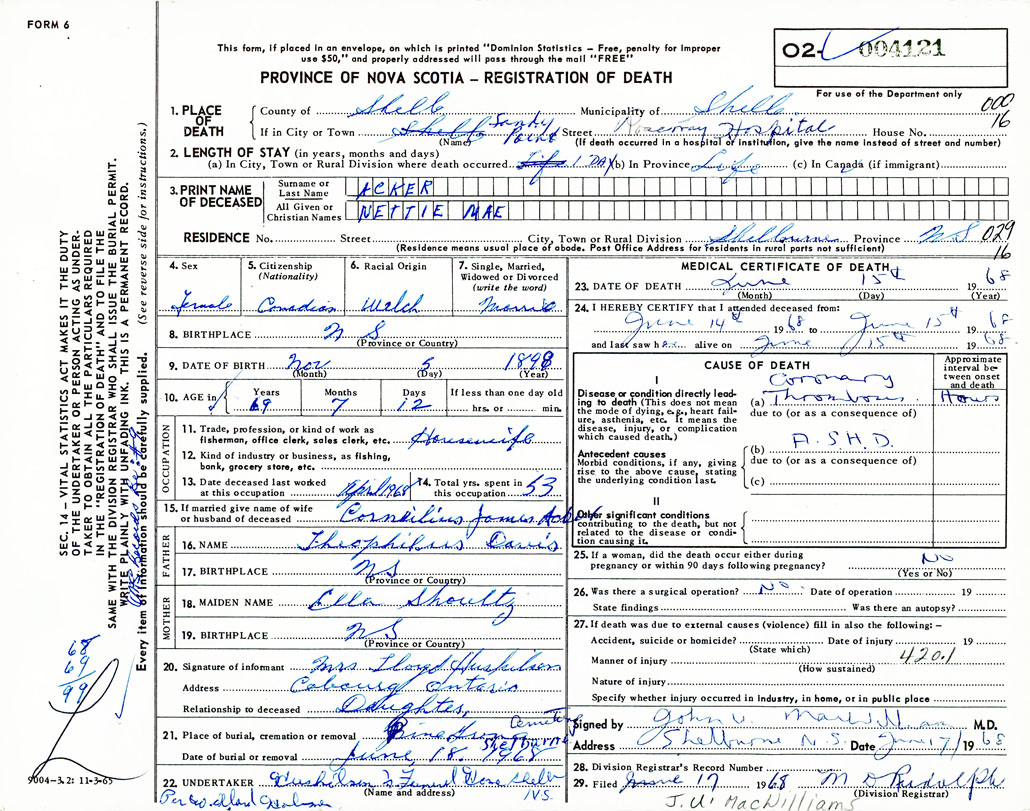 FORM 6
This form, if placed in an envelope, on which is printed "Dominion Statistics – Free, penalty for improper
use $50," and properly addressed will pass through the mail "FREE"
PROVINCE OF NOVA SCOTIA – REGISTRATION OF DEATH
O2- 004121
For use of the Department only
000
16
1. PLACE OF DEATH
County of Shelb Municipality of Shelb
If in City or Town Shelb Sandy Point Street Roseway Hospital House No.
(Name) (If death occurred in a hospital or institution, give the name instead of street and number)
2. LENGTH OF STAY (in years, months and days)
(a) In City, Town or Rural Division where death occurred Life 1 DAY (b) In Province Life (c) In Canada (if immigrant)
3. PRINT NAME OF DECEASED
Surname or Last Name ACKER
All Given or Christian Names NETTIE MAE
RESIDENCE No. Street City, Town or Rural Division Shelburne Province N S 029
16
(Residence means usual place of abode. Post Office Address for residents in rural parts not sufficient)
4. Sex Female
5. Citizenship (Nationality) Canadian
6. Racial Origin Welch
7. Single, Married, Widowed or Divorced (write the word) Married
8. BIRTHPLACE N S
(Province or Country)
9. DATE OF BIRTH Nov 5 1898
(Month) (Day) (Year)
10. AGE in Years 69 Months 7 Days 12 If less than one day old hrs. or min.
OCCUPATION
11. Trade, profession, or kind of work as fisherman, office clerk, sales clerk, etc. Housewife
12. Kind of industry or business, as fishing, bank, grocery store, etc.
13. Date deceased last worked at this occupation April 1968 14. Total yrs. spent in this occupation 53
15. If married give name of wife or husband of deceased Cornelius James Acker
FATHER
16. NAME Theophilus Davis
17. BIRTHPLACE N S
(Province or Country)
MOTHER
18. MAIDEN NAME Ella Shoultz
19. BIRTHPLACE N S
(Province or Country)
20. Signature of informant Mrs. Lloyd Huskilson
Address Cobourg Ontario
Relationship to deceased Daughter
21. Place of burial, cremation or removal Pine Grove Cemetery Shelburne
Date of burial or removal June 18 1968
22. UNDERTAKER Huskilson's Funeral Home Shelb N.S.
(Name and address)
MEDICAL CERTIFICATE OF DEATH
23. DATE OF DEATH June 15th 1968
(Month) (Day) (Year)
24. I HEREBY CERTIFY that I attended deceased from:
June 14th 1968 to June 15th 1968
and last saw her alive on June 15th 1968
CAUSE OF DEATH
Approximate interval between onset and death
I
Disease or condition directly leading to death (This does not mean the mode of dying, e.g., heart failure, asthenia, etc. It means the disease, injury, or complication which caused death.)
(a) Coronary Thrombosis Hours
due to (or as a consequence of)
Antecedent causes
Morbid conditions, if any, giving rise to the above cause, stating the underlying condition last.
(b) A.S.H.D.
due to (or as a consequence of)
(c)
II
Other significant conditions
contributing to the death, but not related to the disease or condition causing it.
25. If a woman, did the death occur either during pregnancy or within 90 days following pregnancy? No
(Yes or No)
26. Was there a surgical operation? No Date of operation 19
State findings Was there an autopsy?
27. If death was due to external causes (violence) fill in also the following: –
Accident, suicide or homicide? Date of injury 19
(State which)
Manner of injury 420.1
(How sustained)
Nature of injury
Specify whether injury occurred in industry, in home, or in public place
Signed by John U. MacWilliam M.D.
Address Shelburne N.S. Date June 17/1968
28. Division Registrar's Record Number
29. Filed June 17 1968 M D Rudolph
(Division Registrar)
J. U. MacWilliams
SEC. 14 – VITAL STATISTICS ACT MAKES IT THE DUTY
OF THE UNDERTAKER OR PERSON ACTING AS UNDER-
TAKER TO OBTAIN ALL THE PARTICULARS REQUIRED
IN THE "REGISTRATION OF DEATH", AND TO FILE THE
SAME WITH THE DIVISION REGISTRAR WHO SHALL ISSUE THE BURIAL PERMIT.
WRITE PLAINLY WITH UNFADING INK. THIS IS A PERMANENT RECORD.
Every item of information should be carefully supplied. (See reverse side for instructions.)
68
69
99
9004-3.2: 11-3-65